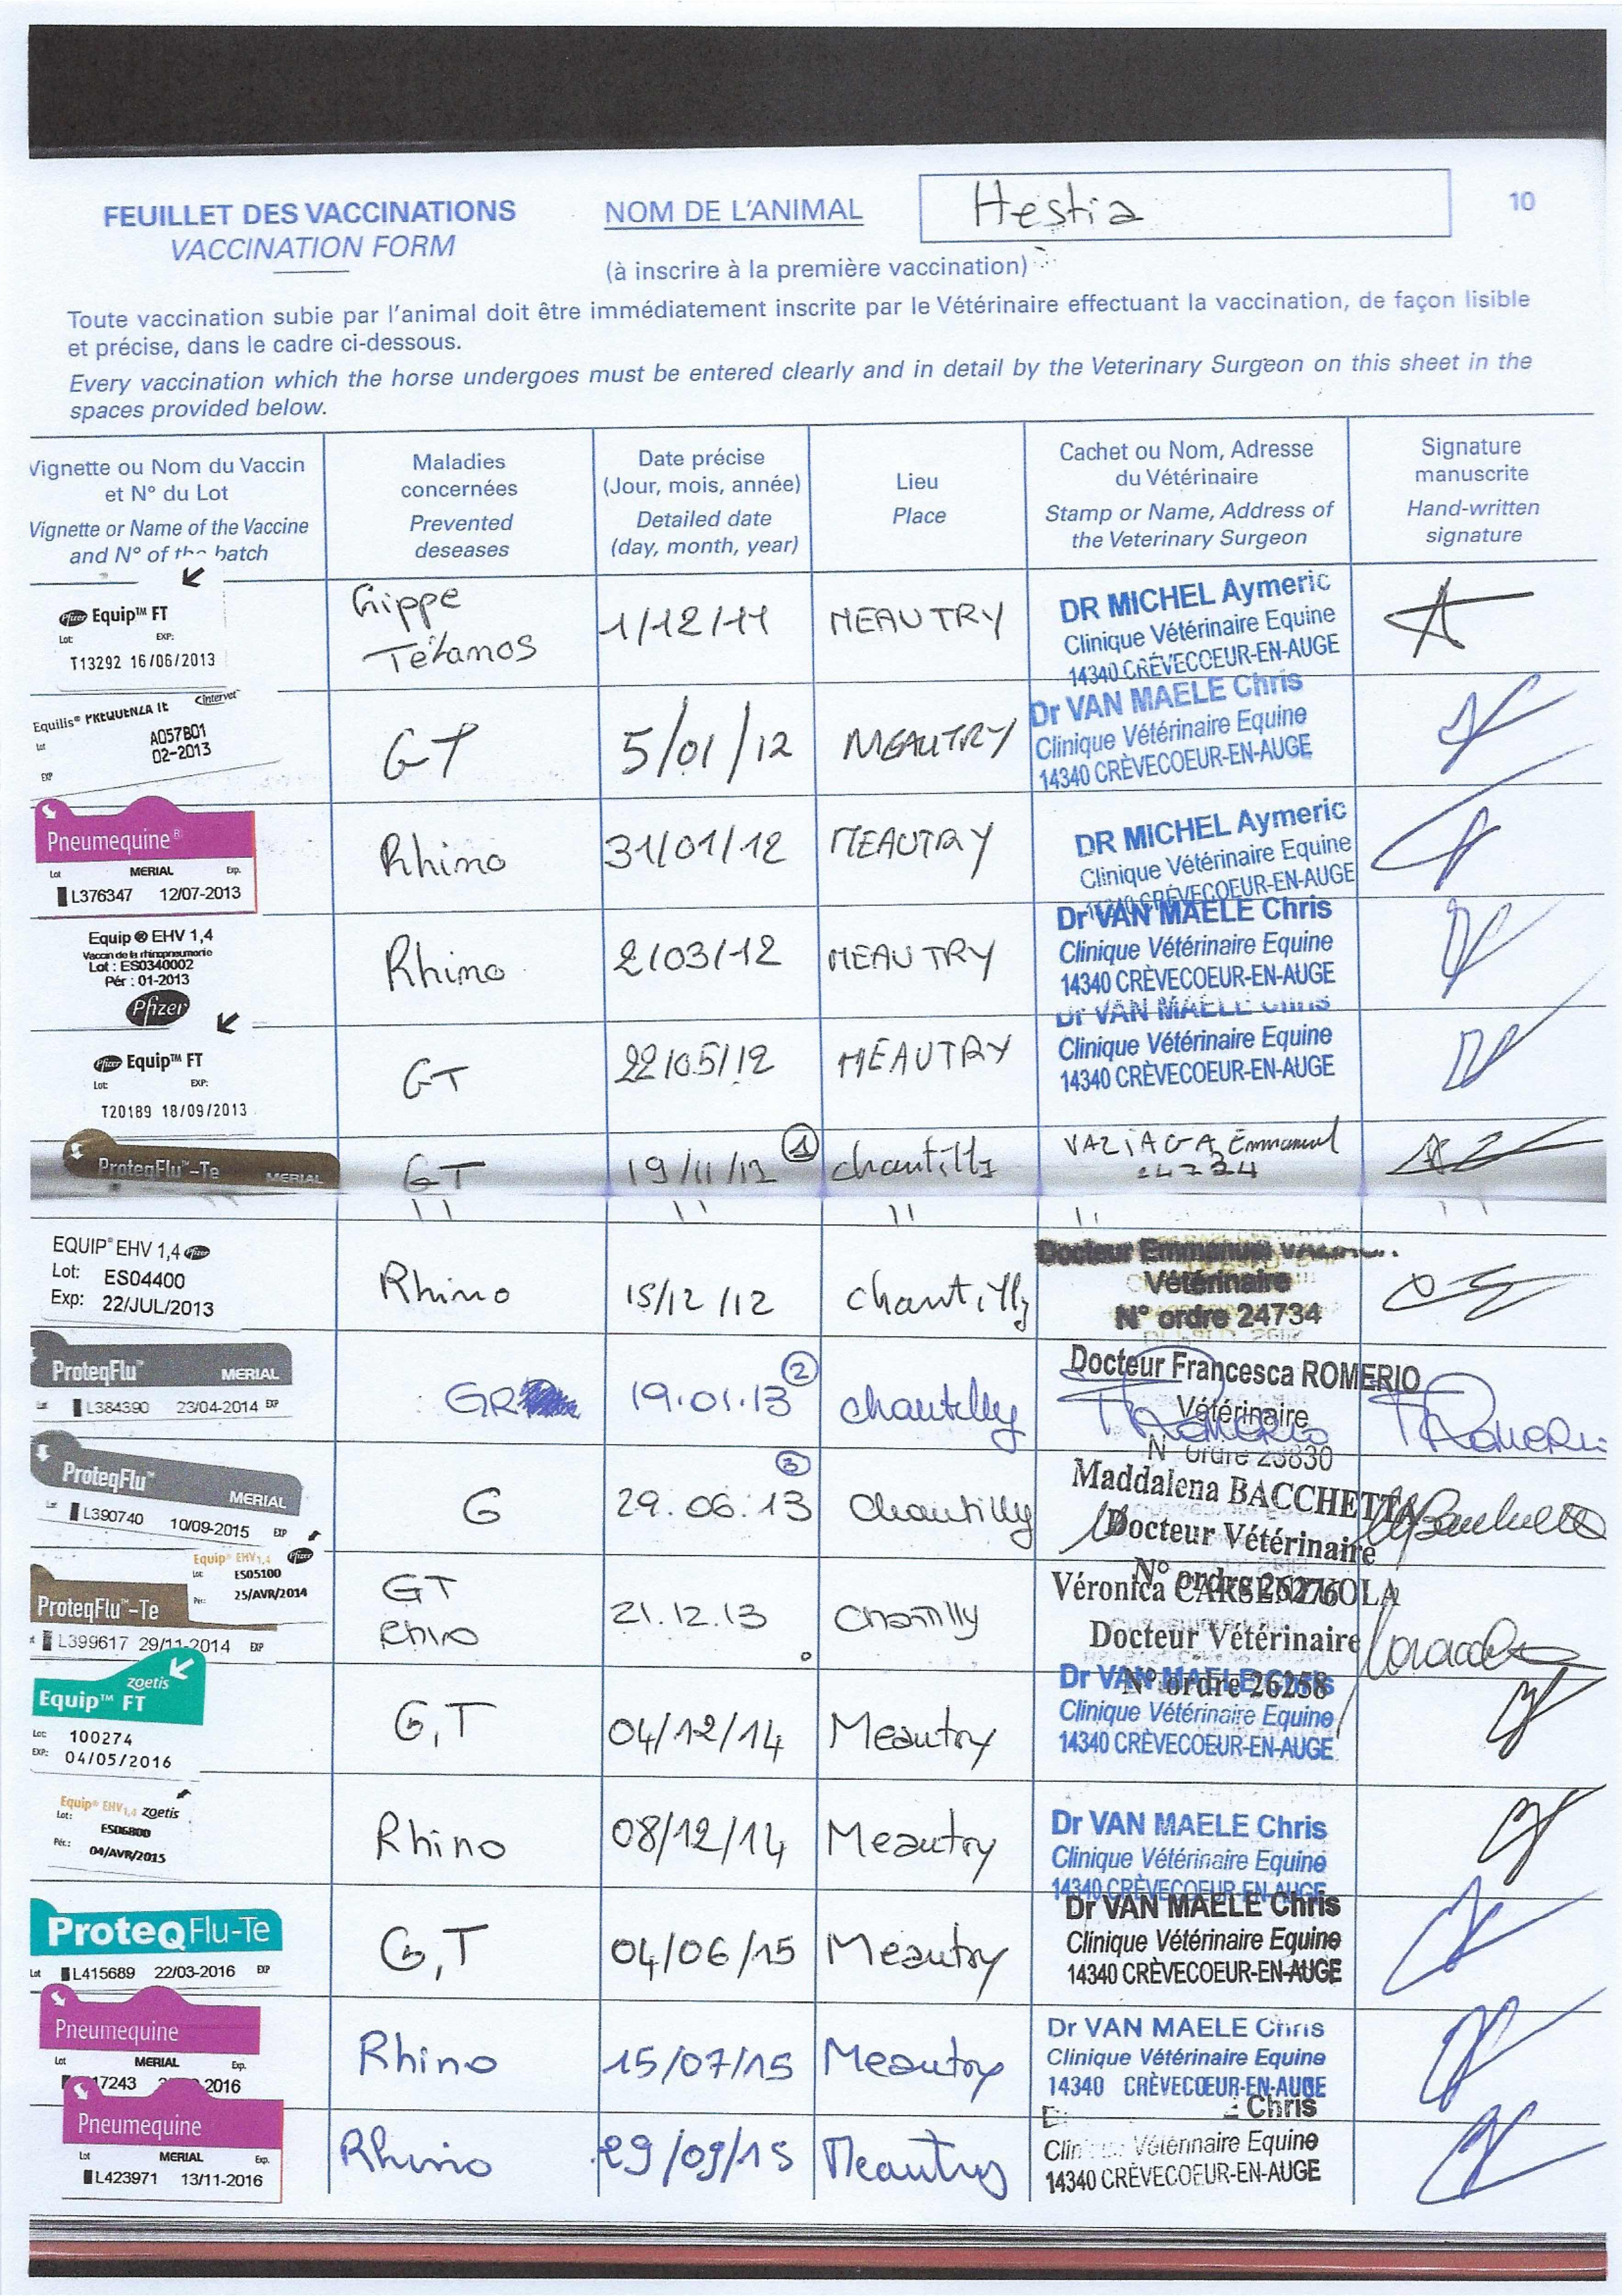 FEUILLET DES VACCINATIONS
VACCINATION FORM
NOM DE L'ANIMAL
Hestia
10
(à inscrire à la première vaccination)
Toute vaccination subie par l'animal doit être immédiatement inscrite par le Vétérinaire effectuant la vaccination, de façon lisible
et précise, dans le cadre ci-dessous.
Every vaccination which the horse undergoes must be entered clearly and in detail by the Veterinary Surgeon on this sheet in the
spaces provided below.
Vignette ou Nom du Vaccin
et N° du Lot
Vignette or Name of the Vaccine
and N° of the batch
Maladies
concernées
Prevented
deseases
Date précise
(Jour, mois, année)
Detailed date
(day, month, year)
Lieu
Place
Cachet ou Nom, Adresse
du Vétérinaire
Stamp or Name, Address of
the Veterinary Surgeon
Signature
manuscrite
Hand-written
signature
Pfizer Equip™ FT
Lot: EXP:
T13292 16/06/2013
Grippe
Tétanos
1/12/11
MEAUTRY
DR MICHEL Aymeric
Clinique Vétérinaire Equine
14340 CRÈVECOEUR-EN-AUGE
Intervet
Equilis® PREQUENZA TE
Lot A057B01
02-2013
EXP
GT
5/01/12
MEAUTRY
Dr VAN MAELE Chris
Clinique Vétérinaire Equine
14340 CRÈVECOEUR-EN-AUGE
Pneumequine®
Lot MERIAL Exp.
L376347 12/07-2013
Rhino
31/01/12
MEAUTRY
DR MICHEL Aymeric
Clinique Vétérinaire Equine
14340 CRÈVECOEUR-EN-AUGE
Equip ® EHV 1,4
Vaccin de la rhinopneumonie
Lot : ES0340002
Pér : 01-2013
Pfizer
Rhino
2/03/12
MEAUTRY
Dr VAN MAELE Chris
Clinique Vétérinaire Equine
14340 CRÈVECOEUR-EN-AUGE
Pfizer Equip™ FT
Lot: EXP:
T20189 18/09/2013
GT
22/05/12
MEAUTRY
Dr VAN MAELE Chris
Clinique Vétérinaire Equine
14340 CRÈVECOEUR-EN-AUGE
ProteqFlu™-Te MERIAL
GT
19/11/12
1
Chantilly
Emmanuel
EQUIP® EHV 1,4 Pfizer
Lot: ES04400
Exp: 22/JUL/2013
Rhino
15/12/12
Chantilly
Docteur Emmanuel
Vétérinaire
N° ordre 24734
ProteqFlu™ MERIAL
L384390 23/04-2014 EXP
GR
19.01.13
2
Chantilly
Docteur Francesca ROMERIO
Vétérinaire
N° ordre 23830
ProteqFlu™
MERIAL
L390740 10/09-2015 EXP
G
29.06.13
3
Chantilly
Maddalena BACCHETTA
Docteur Vétérinaire
N° ordre 26276
Equip® EHV 1,4 Pfizer
Lot: ES05100
Pér.: 25/AVR/2014
ProteqFlu™-Te
L399617 29/11-2014 EXP
GT
Rhino
21.12.13
Chantilly
Véronica
Docteur Vétérinaire
N° ordre 26258
zoetis
Equip™ FT
Lot: 100274
EXP: 04/05/2016
G,T
04/12/14
Meautry
Dr VAN MAELE Chris
Clinique Vétérinaire Equine
14340 CRÈVECOEUR-EN-AUGE
Equip® EHV 1,4 zoetis
Lot: ES06800
Pér.: 04/AVR/2015
Rhino
08/12/14
Meautry
Dr VAN MAELE Chris
Clinique Vétérinaire Equine
14340 CRÈVECOEUR-EN-AUGE
ProteQ Flu-Te
Lot L415689 22/03-2016 EXP
G,T
04/06/15
Meautry
Dr VAN MAELE Chris
Clinique Vétérinaire Equine
14340 CRÈVECOEUR-EN-AUGE
Pneumequine
Lot MERIAL Exp.
17243 2016
Rhino
15/07/15
Meautry
Dr VAN MAELE Chris
Clinique Vétérinaire Equine
14340 CRÈVECŒUR-EN-AUGE
Pneumequine
Lot MERIAL Exp.
L423971 13/11-2016
Rhino
29/09/15
Meautry
Chris
Vétérinaire Equine
14340 CRÈVECOEUR-EN-AUGE